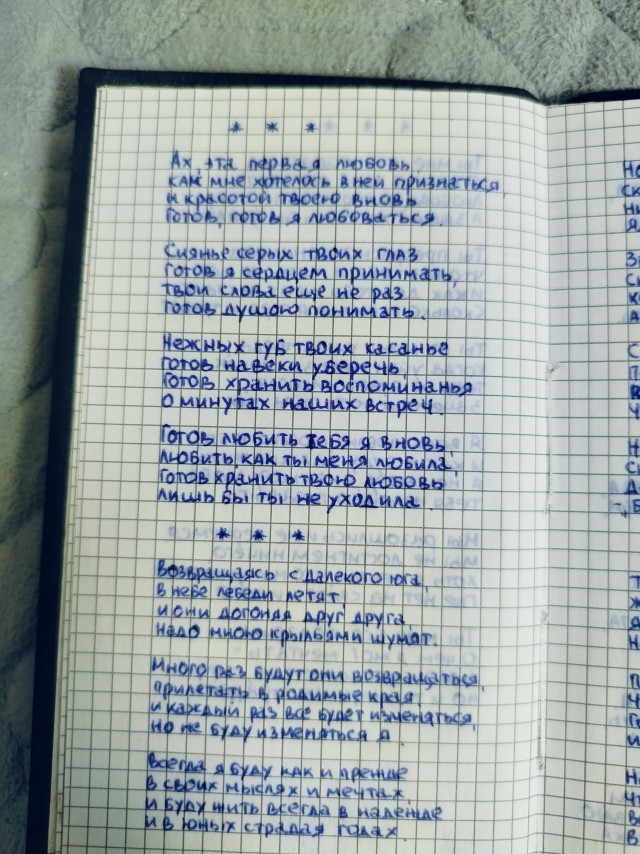 * * *
Ах, эта первая любовь
как мне хотелось в ней признаться,
и красотой твоею вновь
готов, готов я любоваться.
Сиянье серых твоих глаз
готов я сердцем принимать,
твои слова еще не раз
готов душою понимать.
Нежных губ твоих касанье
готов навеки уберечь,
готов хранить воспоминанья
о минутах наших встреч.
Готов любить тебя я вновь,
любить, как ты меня любила,
готов хранить твою любовь
лишь бы ты не уходила.
* * *
Возвращаясь с далекого юга,
в небе лебеди летят,
и они догоняя друг друга,
надо мною крыльями шумят.
Много раз будут они возвращаться,
прилетать в родимые края
и каждый раз всё будет изменяться,
но не буду изменяться я.
Всегда я буду как и прежде
в своих мыслях и мечтах,
и буду жить всегда в надежде
и в юных страдая годах.